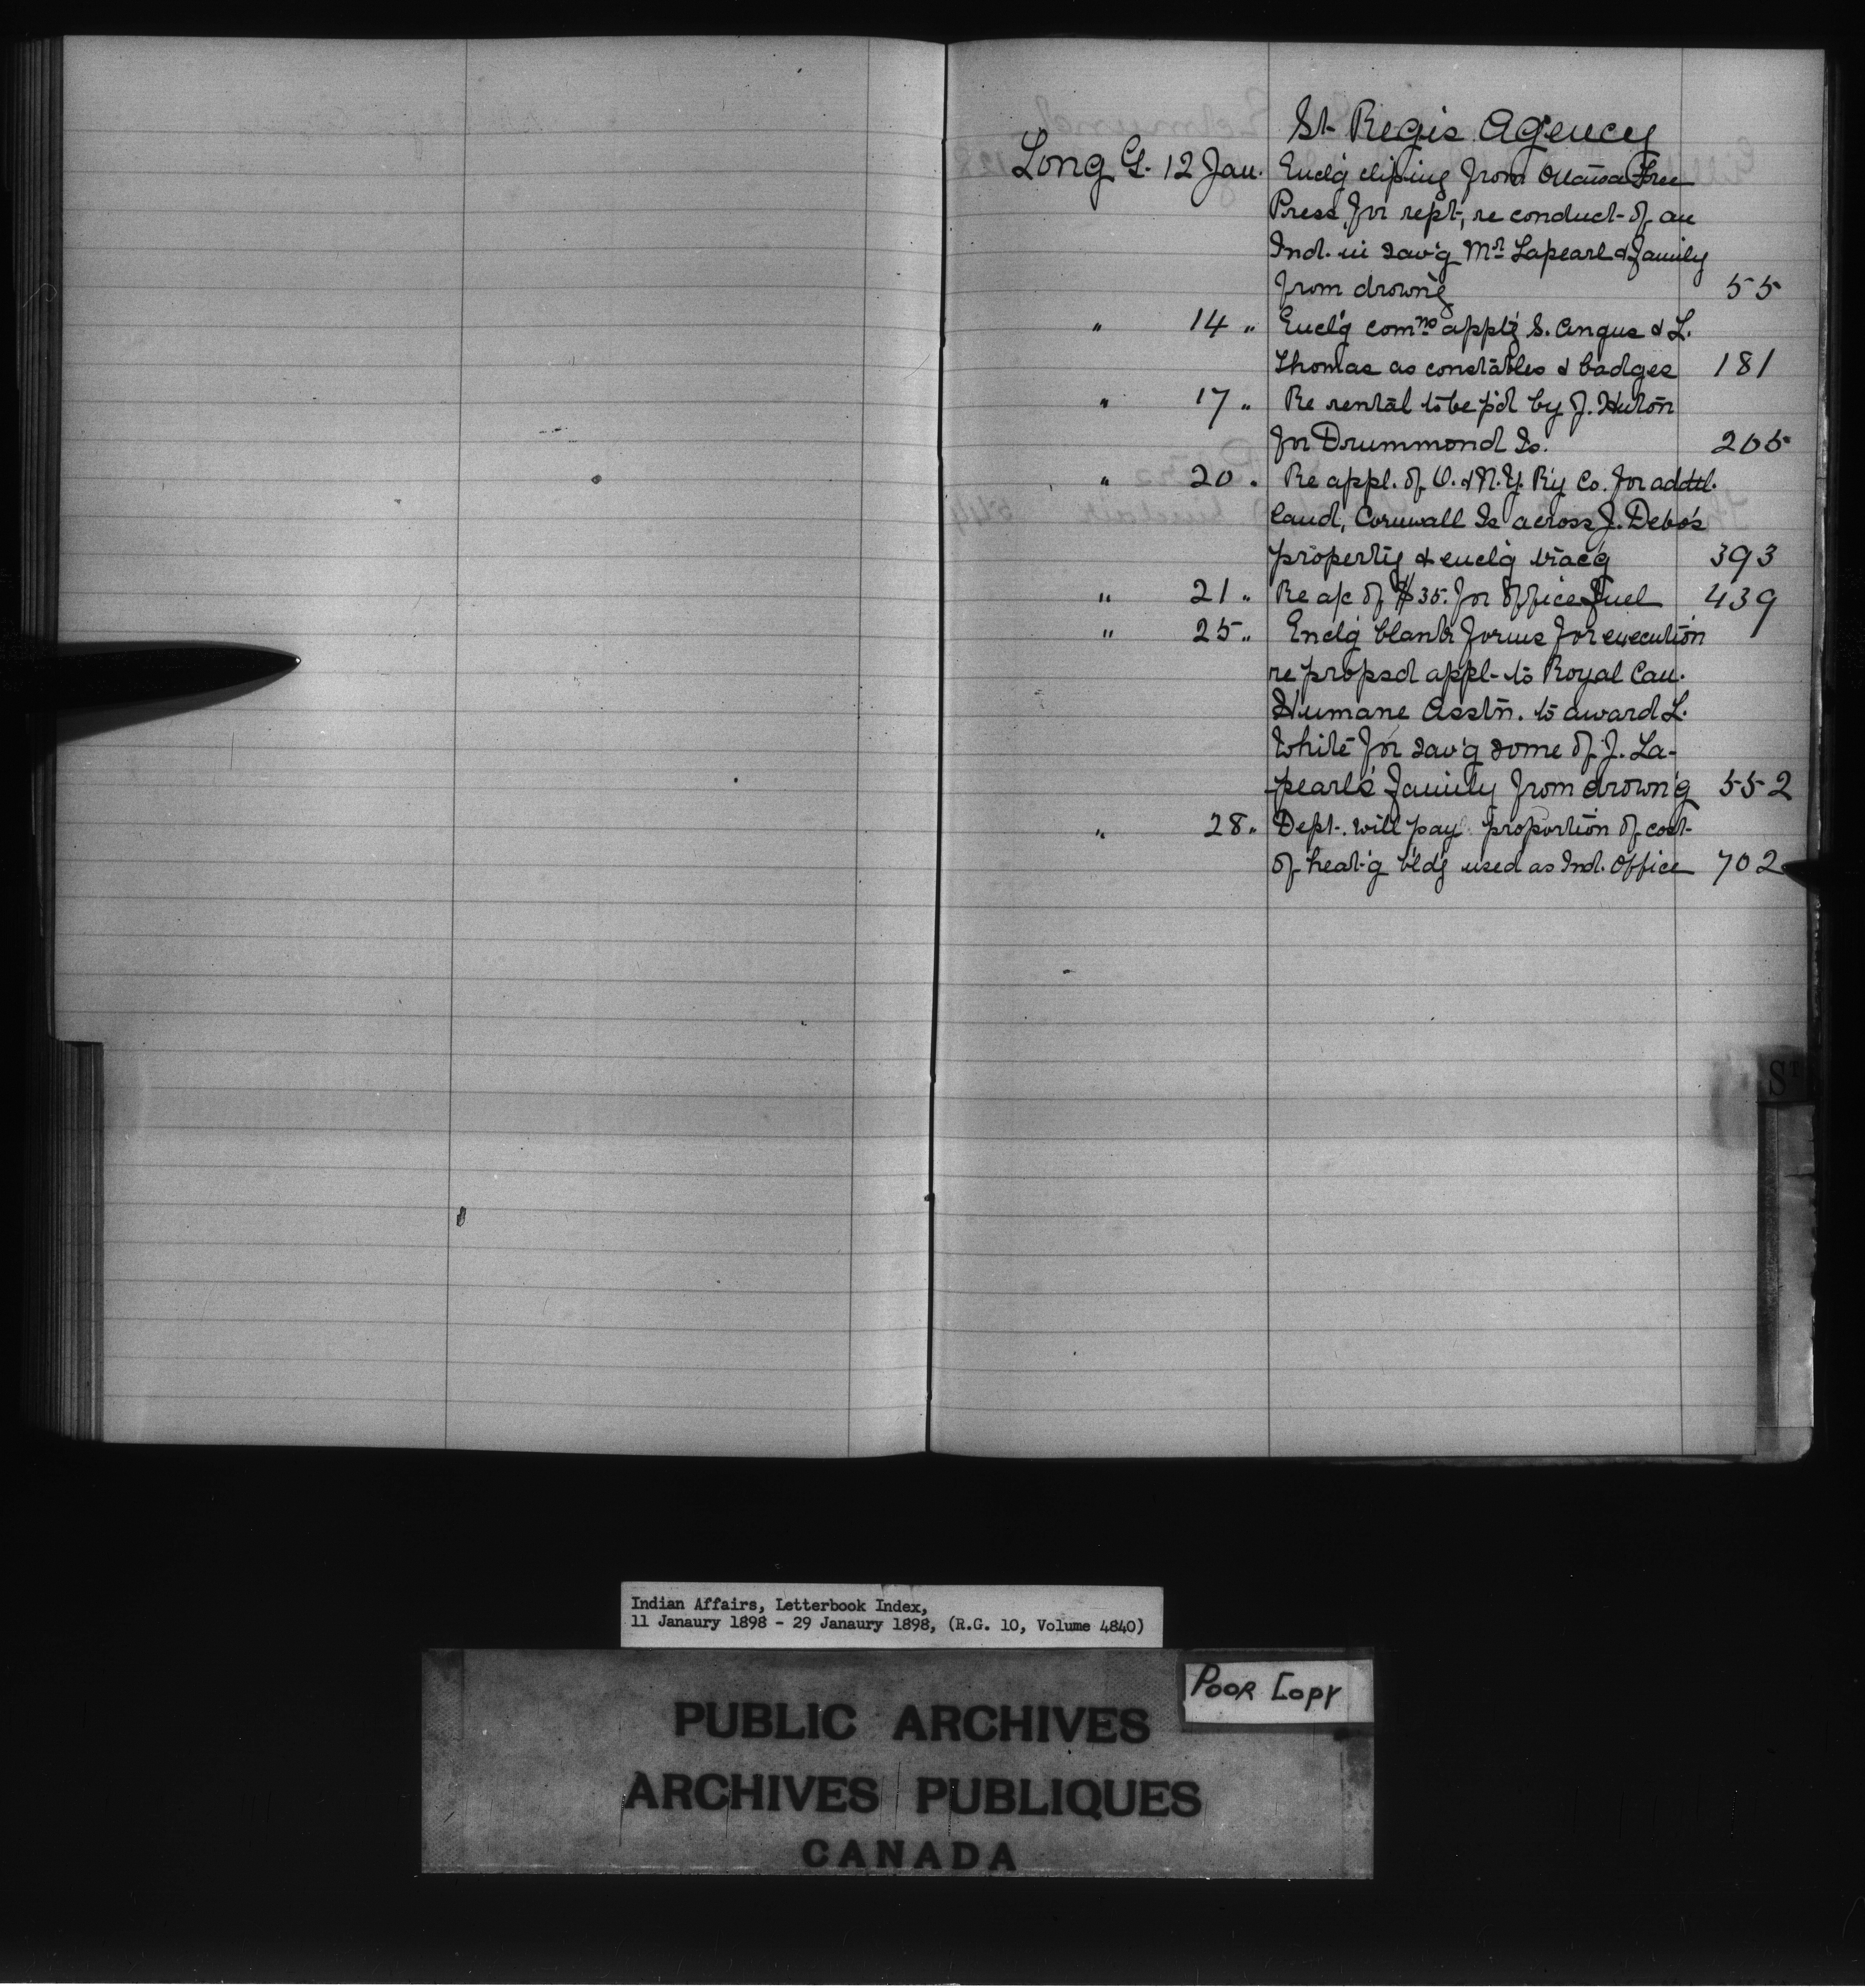 St Regis Agency
Long G. 12 Jan. Encl'g cliping from Ottawa Free
Press for rept, re conduct of an
Ind. in sav'g Mr Lapearl & family
from drown'g 55
" 14 " Encl'g comns app't'g S. Angus & L.
Thomas as constables & badges 181
" 17 " Re rental to be p'd by J. Huton
for Drummond Is. 205
" 20 " Re appl. of O. & N.Y. R'y Co. for addtl.
land, Cornwall Is across J. Debo's
property & encl'g trac'g 393
" 21 " Re a/c of $35. for office fuel 439
" 25 " Encl'g blank forms for execution
re propsd appl- to Royal Can.
Humane Asstn. to award L.
White for sav'g some of J. La-
pearl's family from drown'g 552
" 28 " Dept. will pay proportion of cost
of heat'g bld'g used as Ind. Office 702
ST
Indian Affairs, Letterbook Index,
11 Janaury 1898 - 29 Janaury 1898, (R.G. 10, Volume 4840)
POOR COPY
PUBLIC ARCHIVES
ARCHIVES PUBLIQUES
CANADA